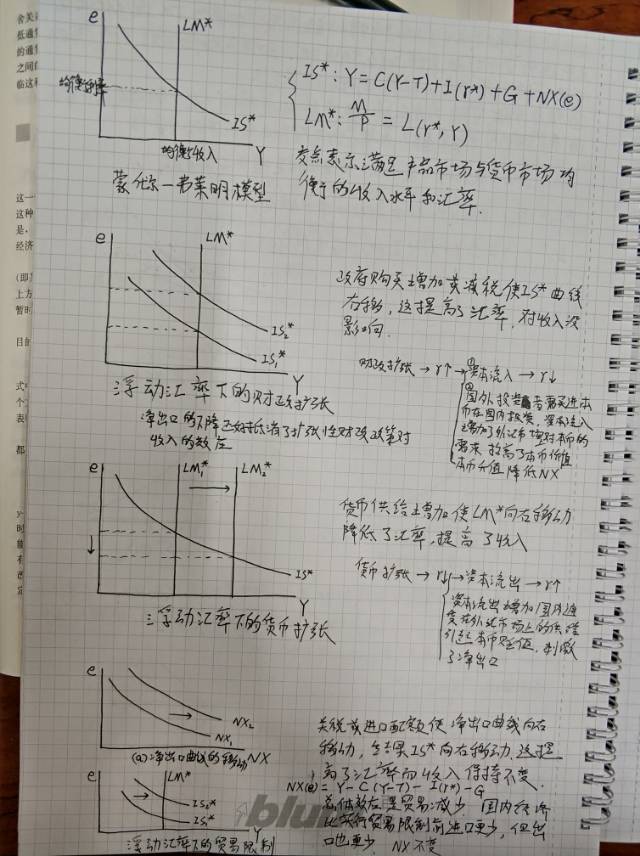 e
LM*
均衡汇率
IS*
均衡收入
Y
蒙代尔-弗莱明模型
IS*: Y=C(Y-T)+I(r*)+G+NX(e)
LM*: M/P = L(r*,Y)
交点表示满足产品市场与货币市场均
衡的收入水平和汇率.
e
LM*
IS₂*
IS₁*
Y
浮动汇率下的财政扩张
净出口的下降正好抵消了扩张性财政政策对
收入的效应
政府购买增加或减税使IS*曲线
右移,这提高了汇率,对收入没
影响.
财政扩张→r↑→①资本流入→r↓
②国外投资者需买进本
币在国内投资,资本流入
增加了外汇市场对本币的
需求,抬高了本币价值
本币升值降低NX
e
LM₁*
LM₂*
IS*
Y
浮动汇率下的货币扩张
货币供给增加使LM*向右移动
降低了汇率,提高了收入
货币扩张→r↓→资本流出→r↑
资本流出增加国内通
货在外汇市场上的供给
引起本币贬值,刺激
了净出口
e
NX₂
NX₁
(a)净出口曲线的移动
NX
e
LM*
IS₂*
IS₁*
浮动汇率下的贸易限制
关税或进口配额使净出口曲线向右
移动,结果IS*向右移动.这提
高了汇率而收入保持不变.
NX(e)=Y-C(Y-T)-I(r*)-G
总体效应是贸易减少.国内经济
比实行贸易限制前进口更少,但出
口也更少,NX不变
blu